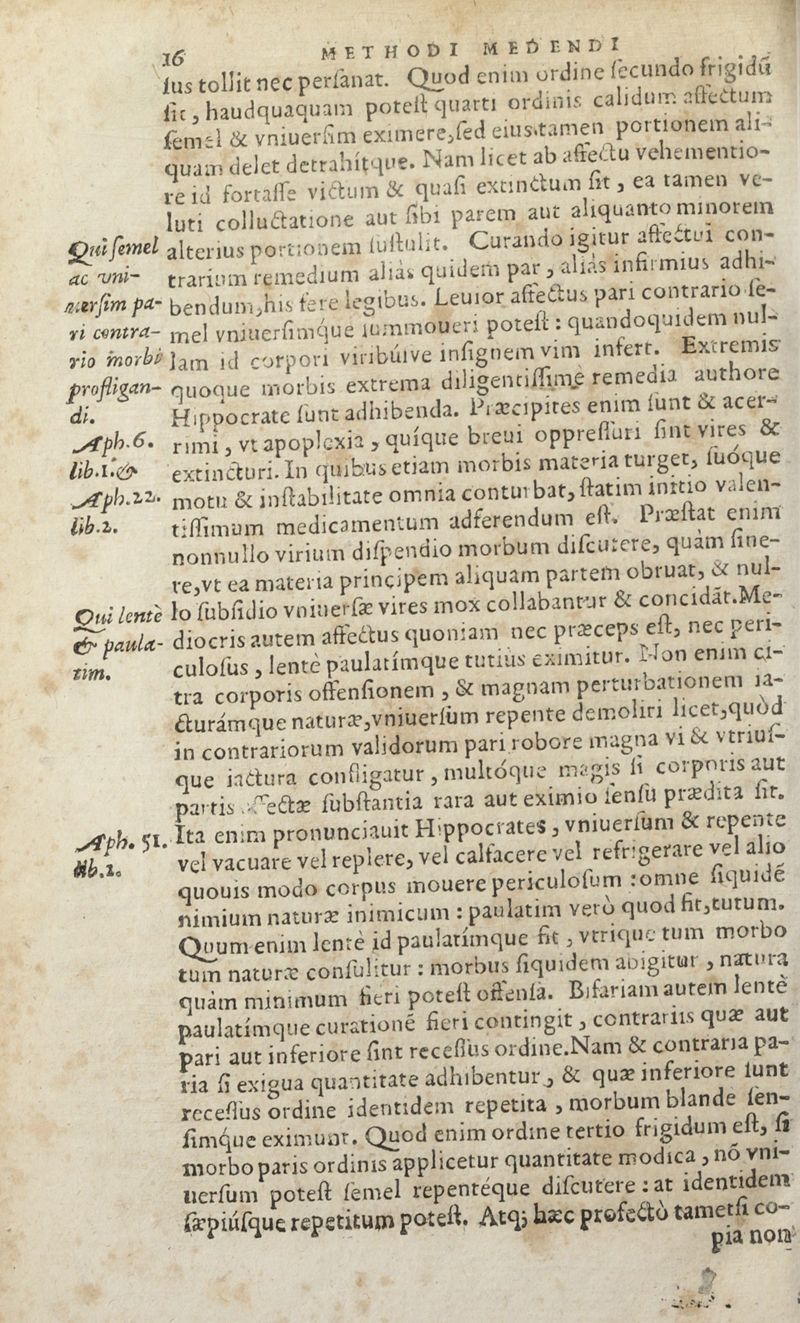 16 METHODI MEDENDI
lus tollit nec persanat. Quod enim ordine secundo frigidũ
sit, haudquaquam potest quarti ordinis calidum affectum
semel & vniuersim eximere, sed eius tamen portionem ali-
quam delet detrahítque. Nam licet ab affectu vehementio-
re id fortasse victum & quasi extinctum sit, ea tamen ve-
luti colluctatione aut sibi parem aut aliquanto minorem
Qui semel alterius portionem sustulit. Curando igitur affectui con-
ac vni- trarium remedium aliàs quidem par, aliàs infirmius adhi-
uersim pa- bendum, his fere legibus. Leuior affectus pari contrario se-
ri contra- mel vniuersimque summoueri potest: quandoquidem nul-
rio morbi lam id corpori viribúsve insignem vim infert. Extremis
profligan- quoque morbis extrema diligentissimè remedia authore
di. Hippocrate sunt adhibenda. Præcipites enim sunt & acer-
Aph. 6. rimi, vt apoplexia, quíque breui oppressuri sint vires &
lib. 1. & extincturi. In quibus etiam morbis materia turget, suoque
Aph. 22. motu & instabilitate omnia conturbat, statim initio valen-
lib. 2. tissimum medicamentum adferendum est. Præstat enim
nonnullo virium dispendio morbum discutere, quàm sine-
re, vt ea materia principem aliquam partem obruat, & nul-
Qui lentè lo subsidio vniuersæ vires mox collabantur & concidãt. Me-
& paula- diocris autem affectus quoniam nec præceps est, nec peri-
tim. culosus, lentè paulatímque tutius eximitur. Non enim ci-
tra corporis offensionem, & magnam perturbationem ia-
cturámque naturæ, vniuersum repente demoliri licet, quod
in contrariorum validorum pari robore magna vi & vtrius-
que iactura confligatur, multóque magis si corporis aut
partis affectæ substantia rara aut eximio sensu prædita sit.
Aph. 51. Ita enim pronunciauit Hippocrates, vniuersum & repente
lib. 2. vel vacuare vel replere, vel calfacere vel refrigerare vel alio
quouis modo corpus mouere periculosum: omne siquide
nimium naturæ inimicum: paulatim verò quod fit, tutum.
Quum enim lentè id paulatímque fit, vtrique tum morbo
tum naturæ consulitur: morbus siquidem abigitur, natura
quàm minimum fieri potest offensa. Bifariam autem lente
paulatímque curationẽ fieri contingit, contrariis quæ aut
pari aut inferiore sint recessus ordine. Nam & contraria pa-
ria si exigua quantitate adhibentur, & quæ inferiore sunt
recessus ordine identidem repetita, morbum blande sen-
simque eximunt. Quod enim ordine tertio frigidum est, si
morbo paris ordinis applicetur quantitate modica, nõ vni-
uersum potest semel repentéque discutere: at identidem
sæpiúsque repetitum potest. Atq; hæc profectò tametsi co-
pia non